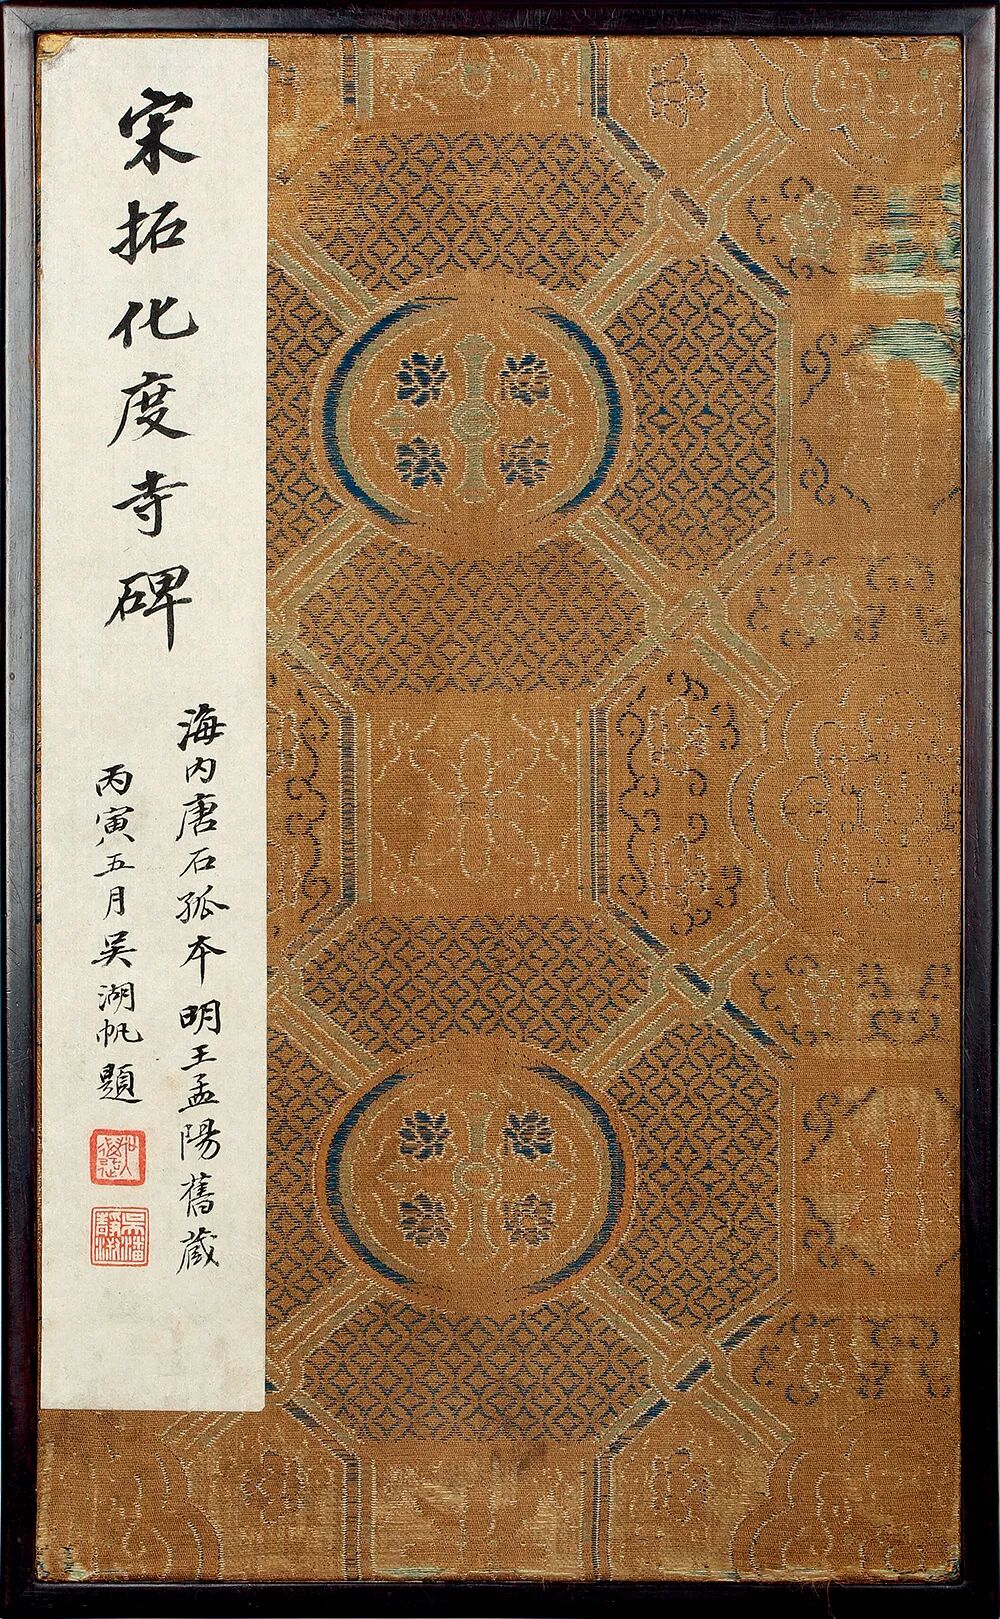 宋拓化度寺碑
海内唐石孤本明王孟陽舊藏
丙寅五月吴湖帆題